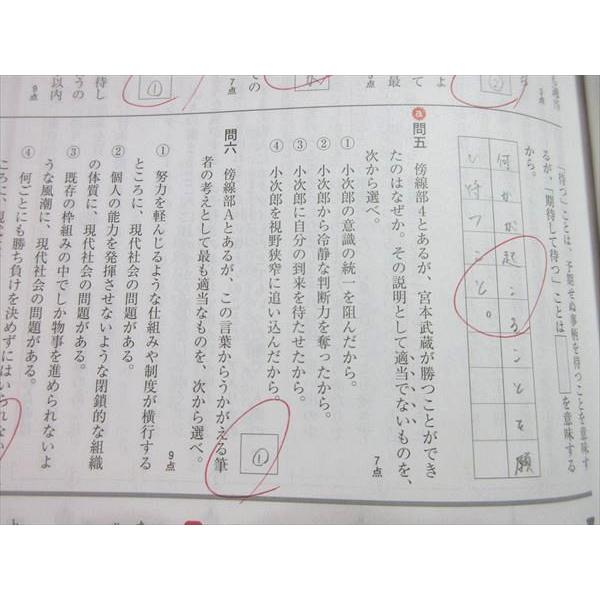 「待つ」ことは、予期せぬ事柄を待つことを意味す
るが、「期待して待つ」ことは を意味する
から。
何かが起こることを願
い待つこと。
問五 傍線部4とあるが、宮本武蔵が勝つことができ
たのはなぜか。その説明として適当でないものを、
次から選べ。
7点
① 小次郎の意識の統一を阻んだから。
② 小次郎から冷静な判断力を奪ったから。
③ 小次郎に自分の到来を待たせたから。
④ 小次郎を視野狭窄に追い込んだから。
①
問六 傍線部Aとあるが、この言葉からうかがえる筆
者の考えとして最も適当なものを、次から選べ。
9点
① 努力を軽んじるような仕組みや制度が横行する
ところに、現代社会の問題がある。
② 個人の能力を発揮させないような閉鎖的な組織
の体質に、現代社会の問題がある。
③ 既存の枠組みの中でしか物事を進められないよ
うな風潮に、現代社会の問題がある。
④ 何ごとにも勝ち負けを決めずにはいられない
②
最
9点
の
7点
①
待し
うの
以内
9点